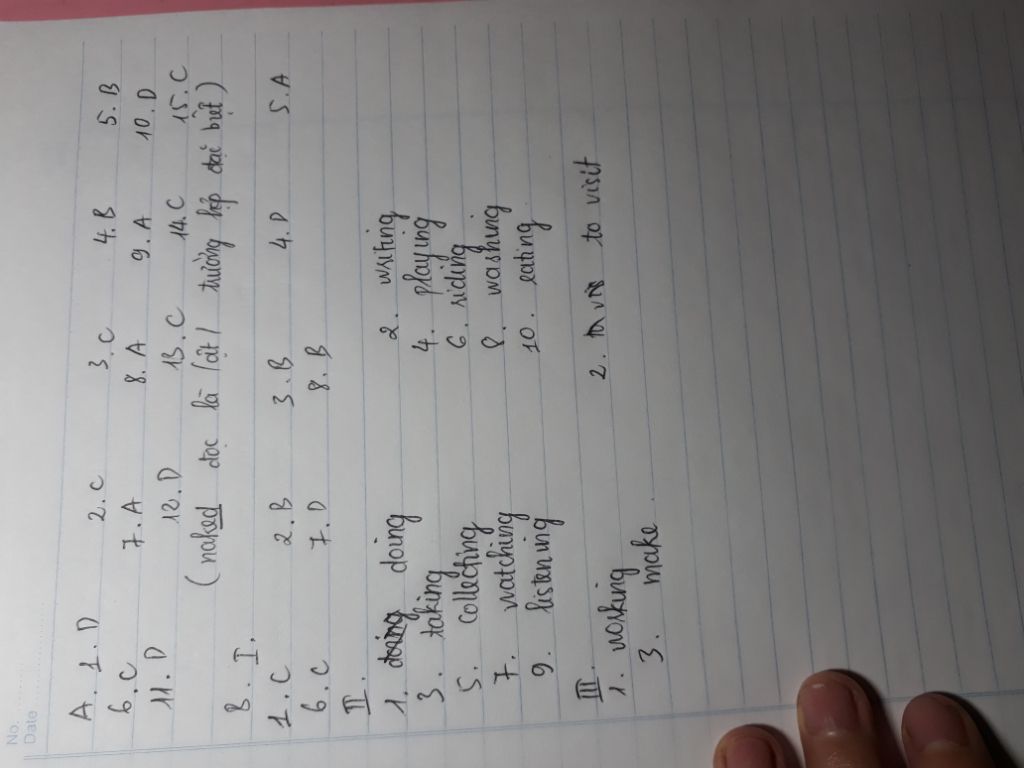 No.
Date
A. 1. D 2. C 3. C 4. B 5. B
6. C 7. A 8. A 9. A 10. D
11. D 12. D 13. C 14. C 15. C
(naked đọc là /ət/ trường hợp đặc biệt)
B. I.
1. C 2. B 3. B 4. D 5. A
6. C 7. D 8. B
II.
1. doing doing 2. writing
3. taking 4. playing
5. collecting 6. riding
7. watching 8. washing
9. listening 10. eating
III.
1. working 2. to visit
3. make